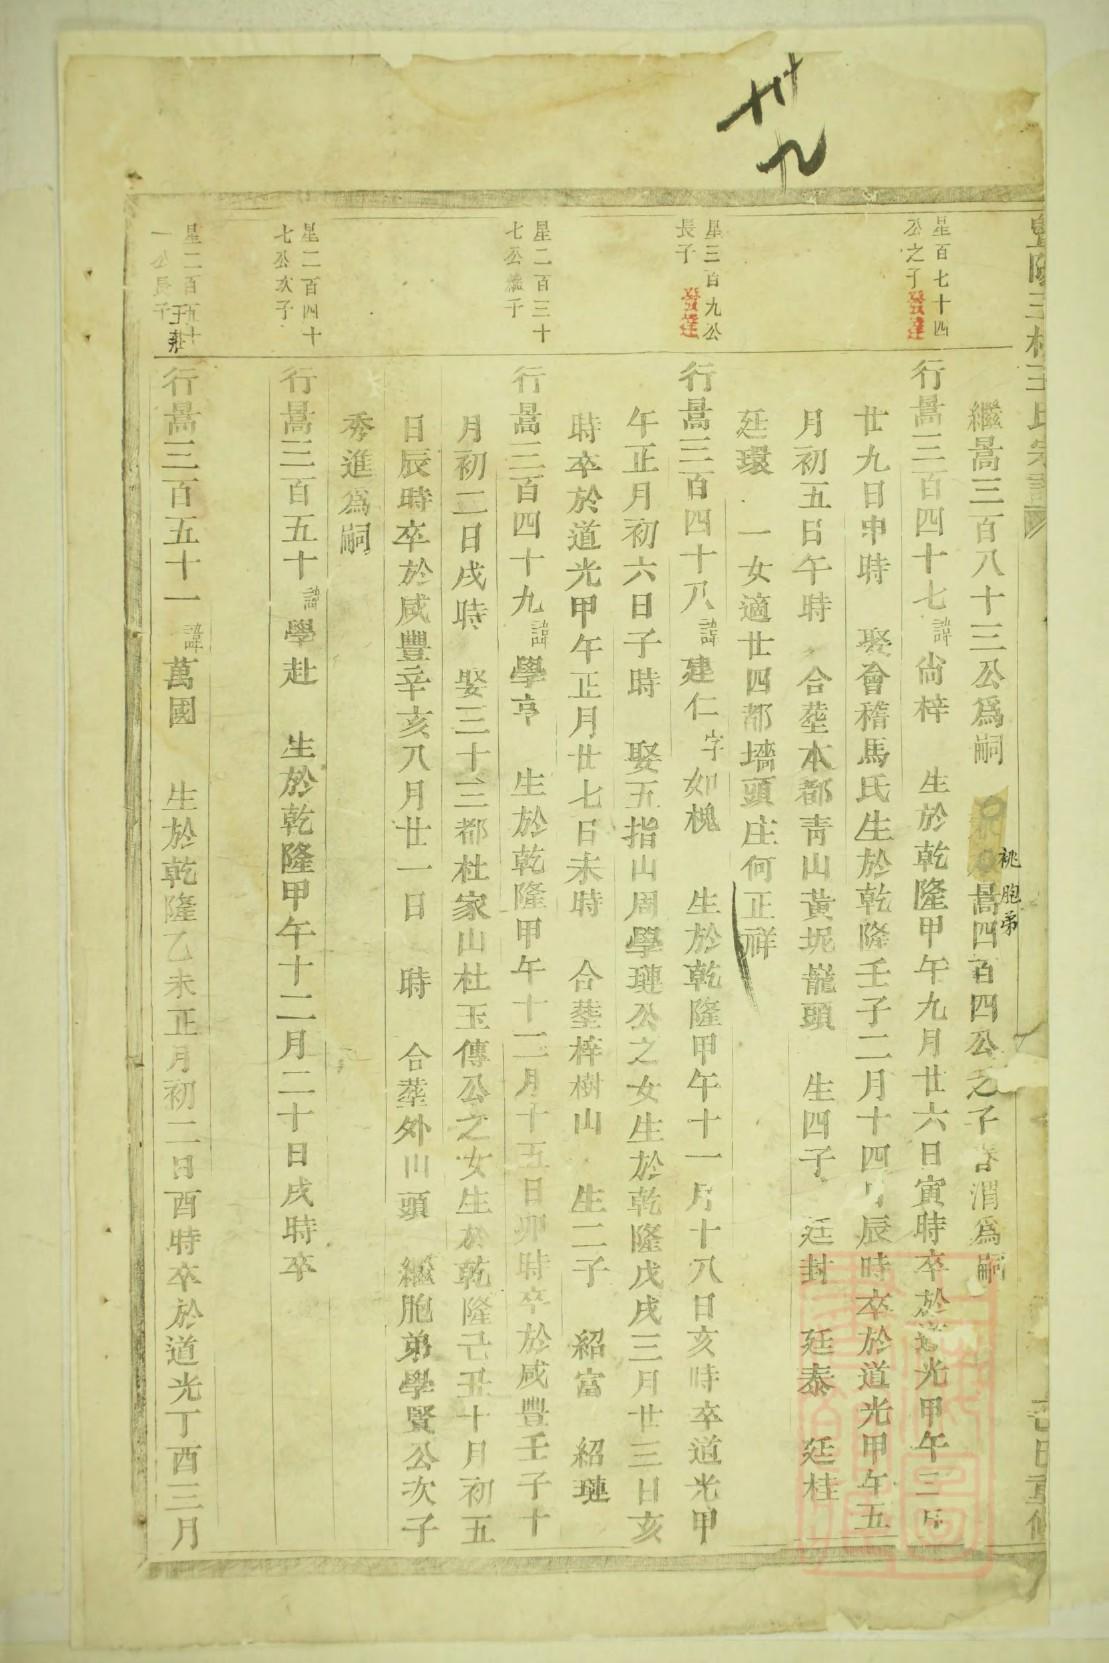 卅九
王氏宗譜
己巳重修
繼暠三百八十三公爲嗣
祧胞弟
暠四百四公之子春渭爲嗣
星百七十四公之子
發達
行暠三百四十七諱尙梓 生於乾隆甲午九月廿六日寅時卒於道光甲午二月
廿九日申時 娶會稽馬氏生於乾隆壬子二月十四日辰時卒於道光甲午五
月初五日午時 合塟本都靑山黃坭巃頭 生四子 廷封 廷泰 廷桂
廷環 一女適廿四都墻頭庄何正祥
星三百九公長子
發達
行暠三百四十八諱建仁字如槐 生於乾隆甲午十一月十八日亥時卒道光甲
午正月初六日子時 娶五指山周學璉公之女生於乾隆戊戌三月廿三日亥
時卒於道光甲午正月廿七日未時 合塟梓樹山 生二子 紹富 紹璉
星二百三十七公繼子
行暠三百四十九諱學亨 生於乾隆甲午十二月十五日卯時卒於咸豐壬子十
月初二日戌時 娶三十三都杜家山杜玉傳公之女生於乾隆己丑十月初五
日辰時卒於咸豐辛亥八月廿一日 時 合塟外山頭 繼胞弟學賢公次子
秀進爲嗣
星二百四十七公次子
行暠三百五十諱學赴 生於乾隆甲午十二月二十日戌時卒
星二百五十一公長子
王莊
行暠三百五十一諱萬國 生於乾隆乙未正月初二日酉時卒於道光丁酉三月